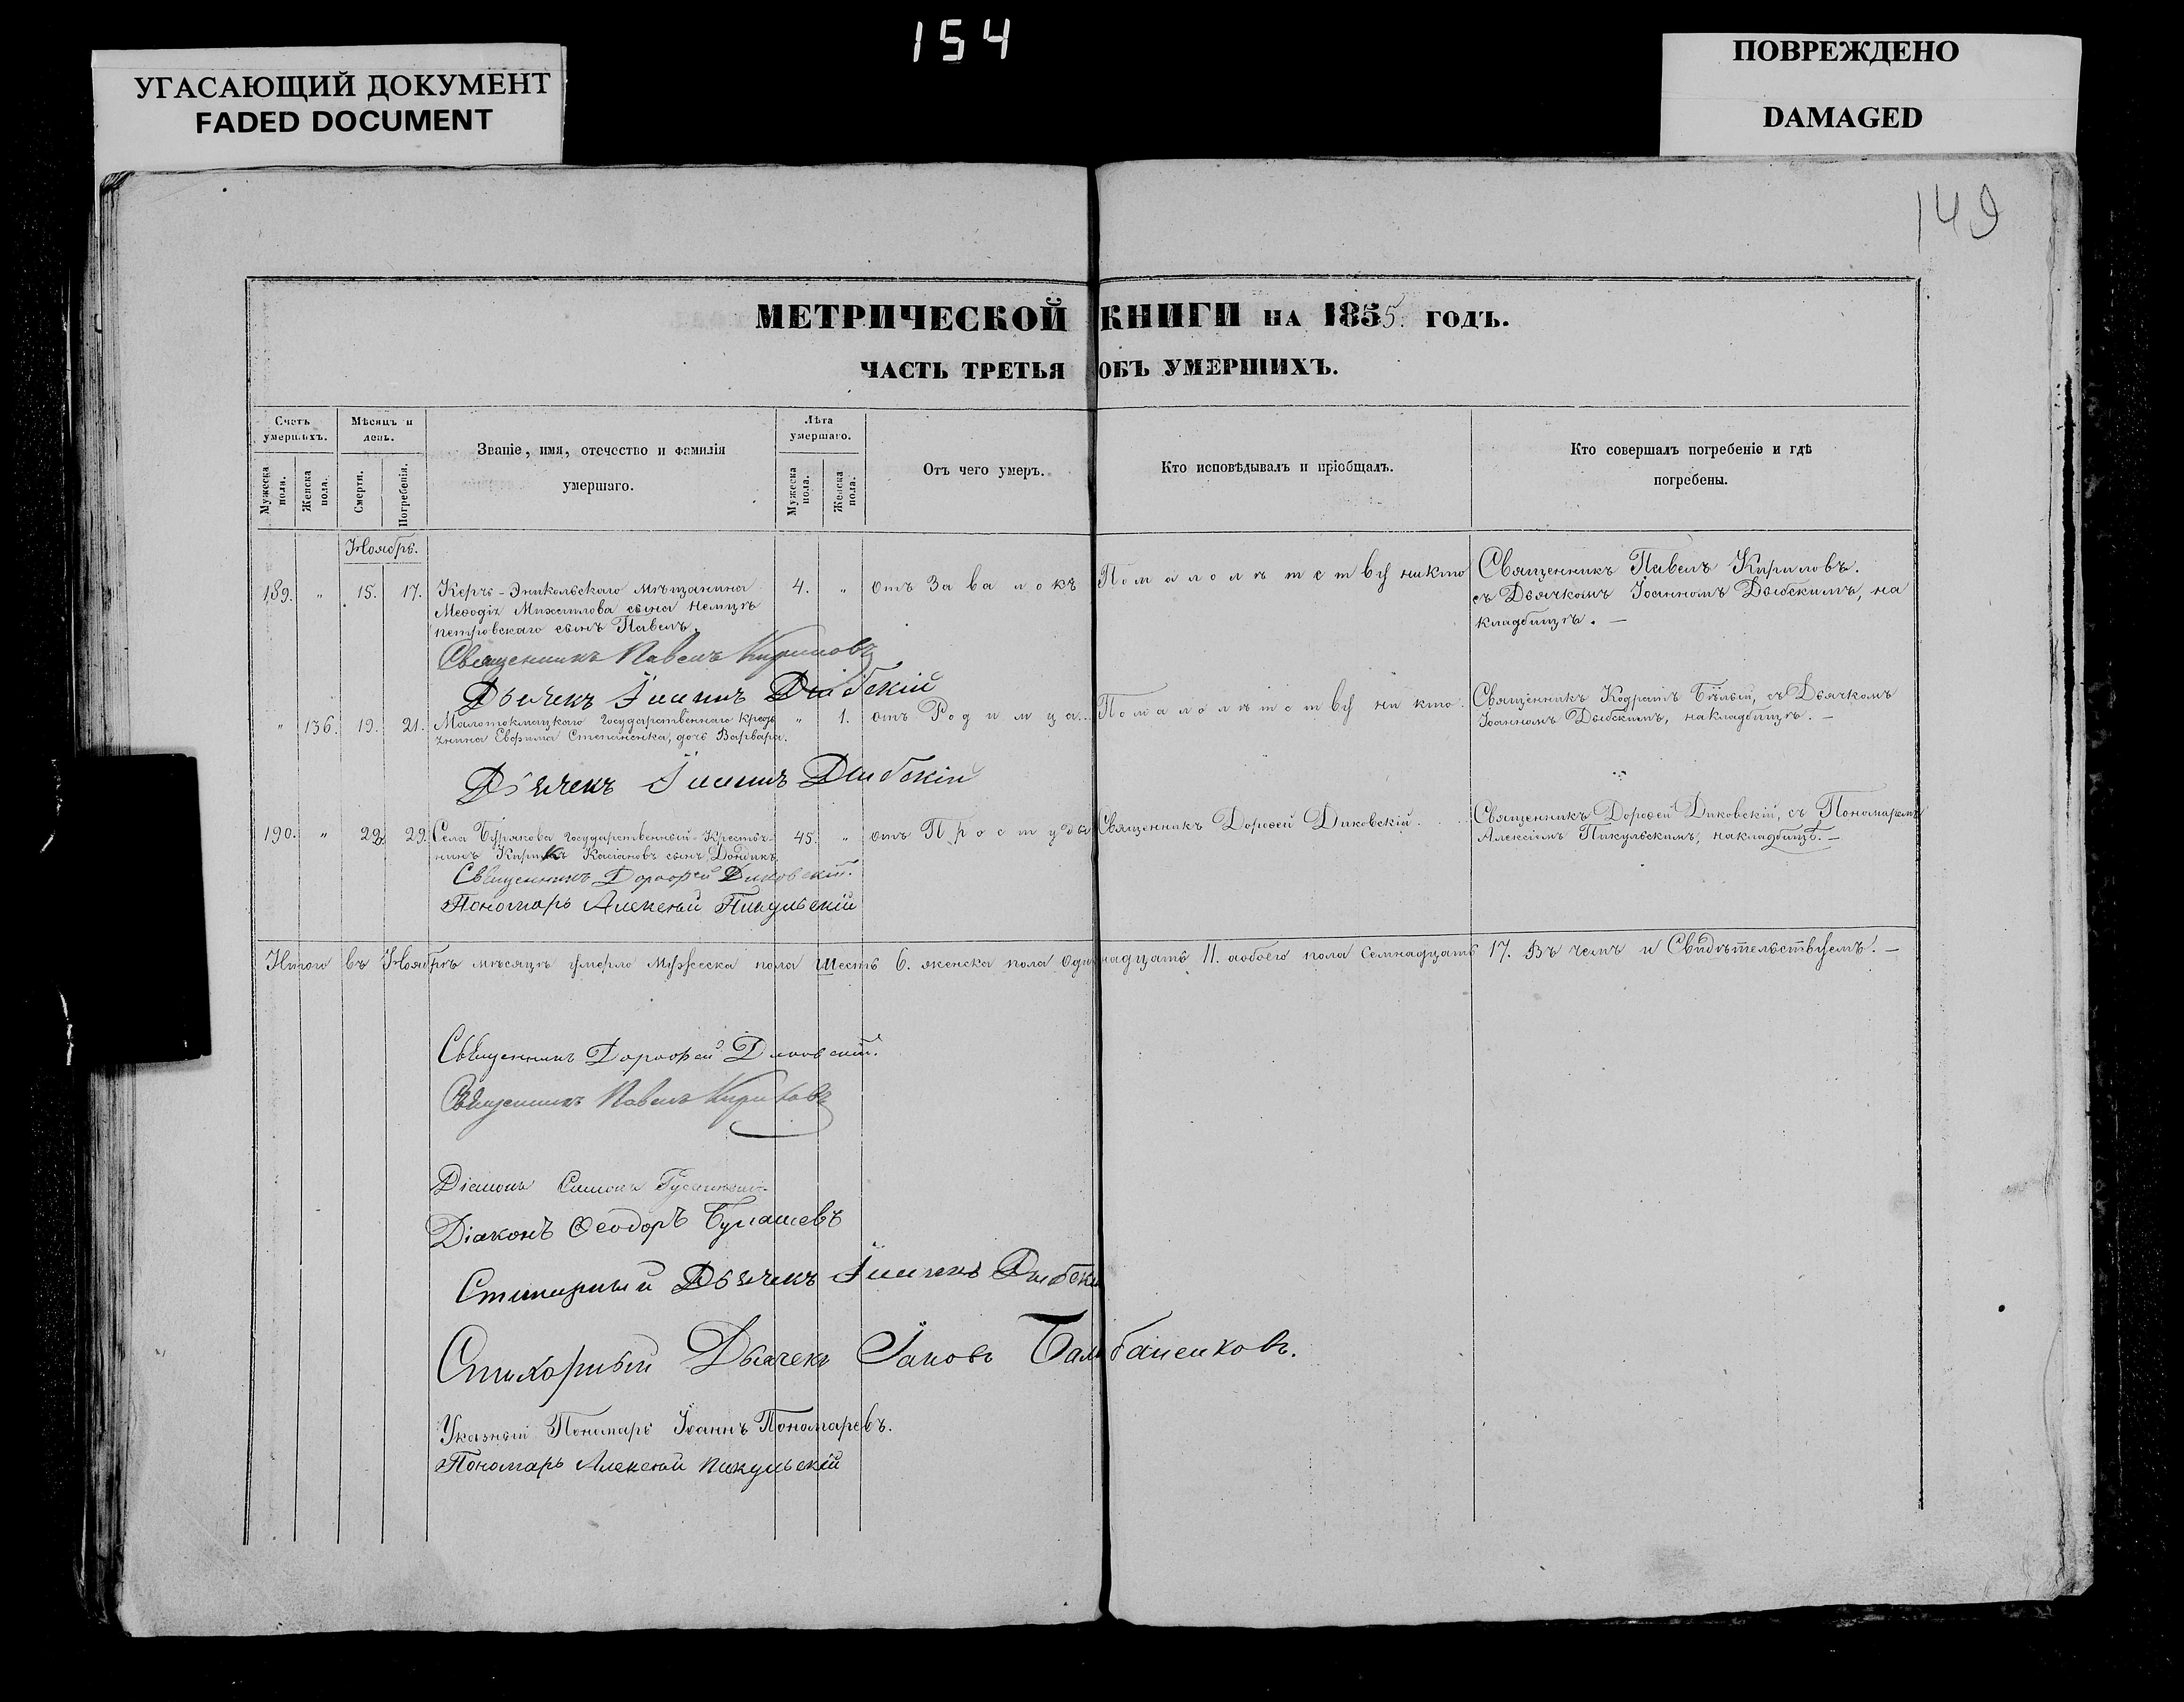 154
УГАСАЮЩИЙ ДОКУМЕНТ
FADED DOCUMENT
ПОВРЕЖДЕНО
DAMAGED
149
МЕТРИЧЕСКОЙ КНИГИ НА 1855. ГОДЪ.
ЧАСТЬ ТРЕТЬЯ ОБЪ УМЕРШИХЪ.
Счетъ умершихъ.
Мужеска пола.
Женска пола.
Мѣсяцъ и день.
Смерти.
Погребенія.
Званіе, имя, отечество и фамилія умершаго.
Лѣта умершаго.
Мужеска пола.
Женска пола.
Отъ чего умеръ.
Кто исповѣдывалъ и пріобщалъ.
Кто совершалъ погребеніе и гдѣ погребены.
Ноябрь.
189. " 15. 17. Керчь-Эникольскаго мѣщанина 4. " отъ Завалокъ По малолѣтству никто Священникъ Павелъ Кириловъ.
Меѳодія Михаилова сына
петровскаго сынъ Павелъ.
съ Дьячкомъ Іоанномъ Дыбскимъ, на
кладбищѣ. —
Священникъ Павелъ Кириловъ
Дьячекъ Іоаннъ Дыбскій
" 136. 19. 21. Малотокмацкаго Государственнаго Кресть " 1. отъ Родимца.. По малолѣтству ни кто. Священникъ Кодратъ Бѣлый, съ Дьячкомъ
янина Евфима Степаненка, дочь Варвара.
Іоанномъ Дыбскимъ, на кладбищѣ. —
Дьячекъ Іоаннъ Дыбскій
190. " 22. 29. Села Бурякова Государственный Крестья- 45. " отъ Простуды Священникъ Дороѳей Диковскій. Священникъ Дороѳей Диковскій, съ Пономаремъ
нинъ Кирикъ Касіановъ сынъ Дондикъ
Алексіемъ Пикульскимъ, на кладбищѣ. —
Священникъ Дороѳей Диковскій.
Пономарь Алексѣй Пикульскій
Итого въ Ноябрѣ мѣсяцѣ умерло Мужеска пола Шесть 6. женска пола Одинадцать 11. а обоего пола Семнадцать 17. Въ чемъ и Свидѣтельствуемъ. —
Священникъ Дороѳей Диковскій.
Священникъ Павелъ Кириловъ
Діаконъ Симонъ
Діаконъ Ѳеодоръ
Стихарный Дьячекъ Іоаннъ Дыбскій
Стихарный Дьячекъ Іаковъ Балабаненковъ.
Указный Пономарь Іоаннъ Пономаревъ.
Пономарь Алексѣй Пикульскій